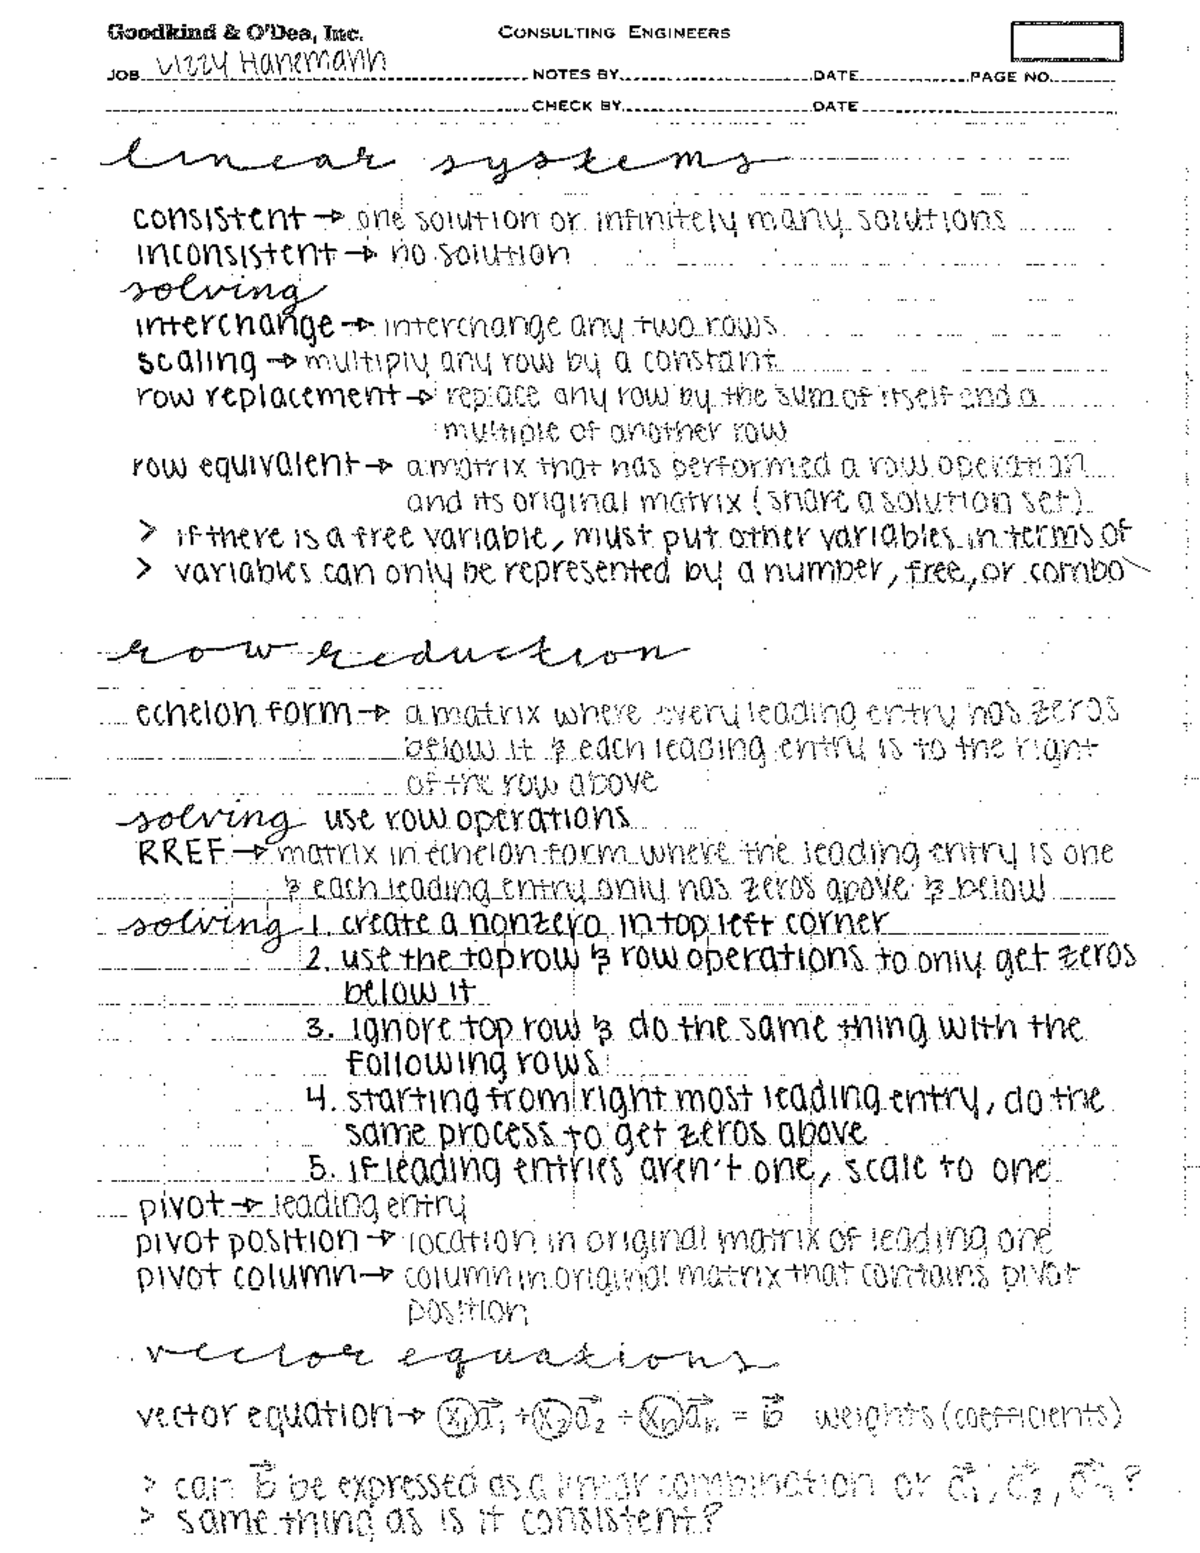 Goodkind & O'Dea, Inc. CONSULTING ENGINEERS
JOB Lizzy Hanemann NOTES BY DATE PAGE NO.
CHECK BY DATE
linear systems
consistent → one solution or infinitely many solutions
inconsistent → no solution
solving
interchange → interchange any two rows
scaling → multiply any row by a constant
row replacement → replace any row by the sum of itself and a
multiple of another row
row equivalent → a matrix that has performed a row operation
and its original matrix (share a solution set)
> if there is a free variable, must put other variables in terms of
> variables can only be represented by a number, free, or combo
row reduction
echelon form → a matrix where every leading entry has zeros
below it & each leading entry is to the right
of the row above
solving use row operations
RREF → matrix in echelon form where the leading entry is one
& each leading entry only has zeros above & below
solving 1. create a nonzero in top left corner
2. use the top row & row operations to only get zeros
below it
3. ignore top row & do the same thing with the
following rows
4. starting from right most leading entry, do the
same process to get zeros above
5. if leading entries aren't one, scale to one
pivot → leading entry
pivot position → location in original matrix of leading one
pivot column → column in original matrix that contains pivot
position
vector equations
vector equation → x₁a⃗₁ + x₂a⃗₂ + xₙa⃗ₙ = b⃗ weights (coefficients)
> can b⃗ be expressed as a linear combination of a⃗₁, a⃗₂, a⃗ₙ?
> same thing as is it consistent?